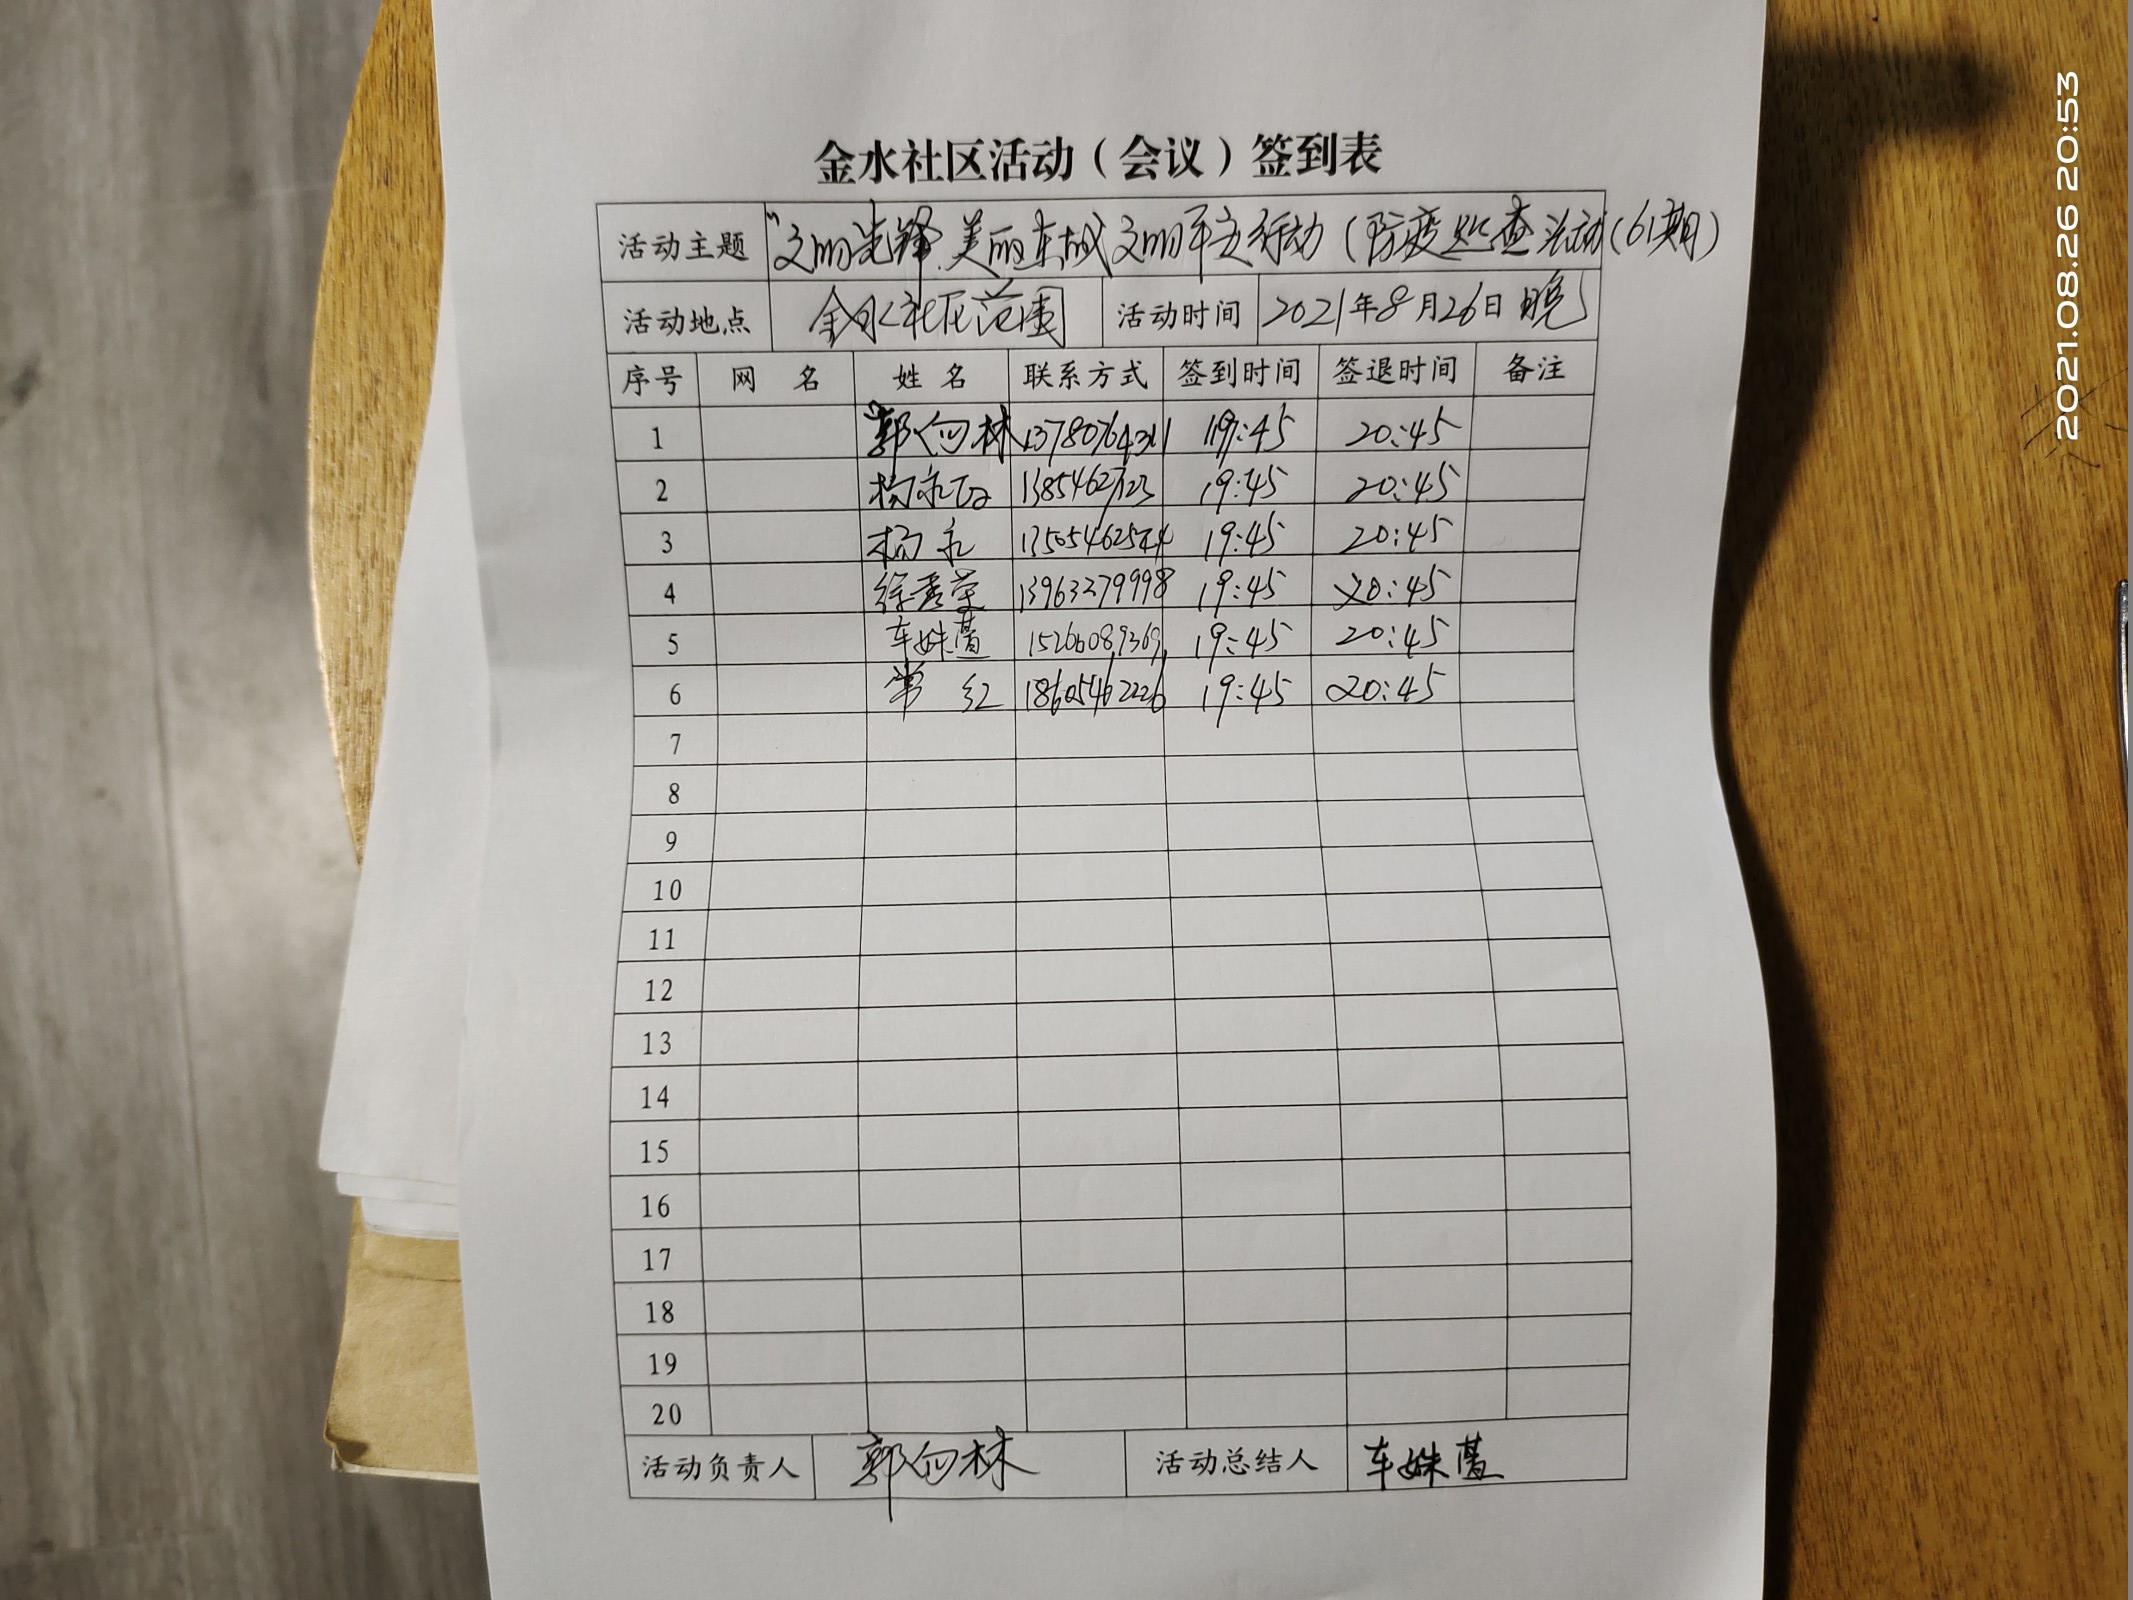 金水社区活动（会议）签到表
活动主题 "文明先锋.美丽东城文明平安行动(防疫巡查活动(61期)
活动地点 金水社区范围 活动时间 2021年8月26日 晚
序号 网 名 姓 名 联系方式 签到时间 签退时间 备注
1 郭向林 19:45 20:45
2 杨永 19:45 20:45
3 杨永 13505462544 19:45 20:45
4 徐秀荣 13963279998 19:45 20:45
5 车姝萱 15266089369 19:45 20:45
6 常 红 18605462226 19:45 20:45
7
8
9
10
11
12
13
14
15
16
17
18
19
20
活动负责人 郭向林 活动总结人 车姝萱
2021.08.26 20:53